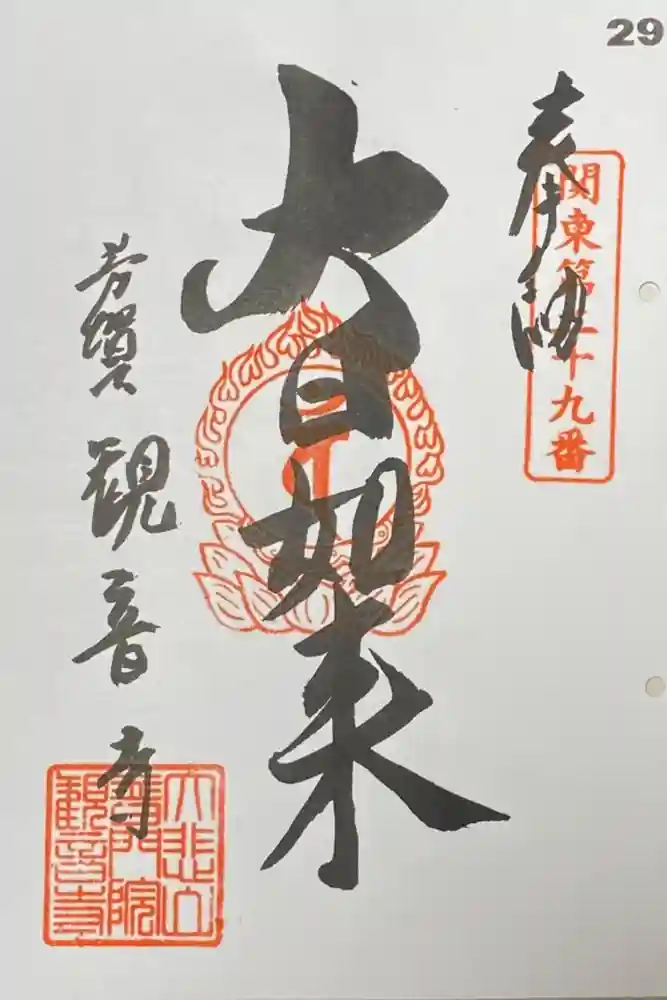 29
奉納
関東第二十九番
大日如来
芳賀 観音寺
大悲山
普門院
観音寺